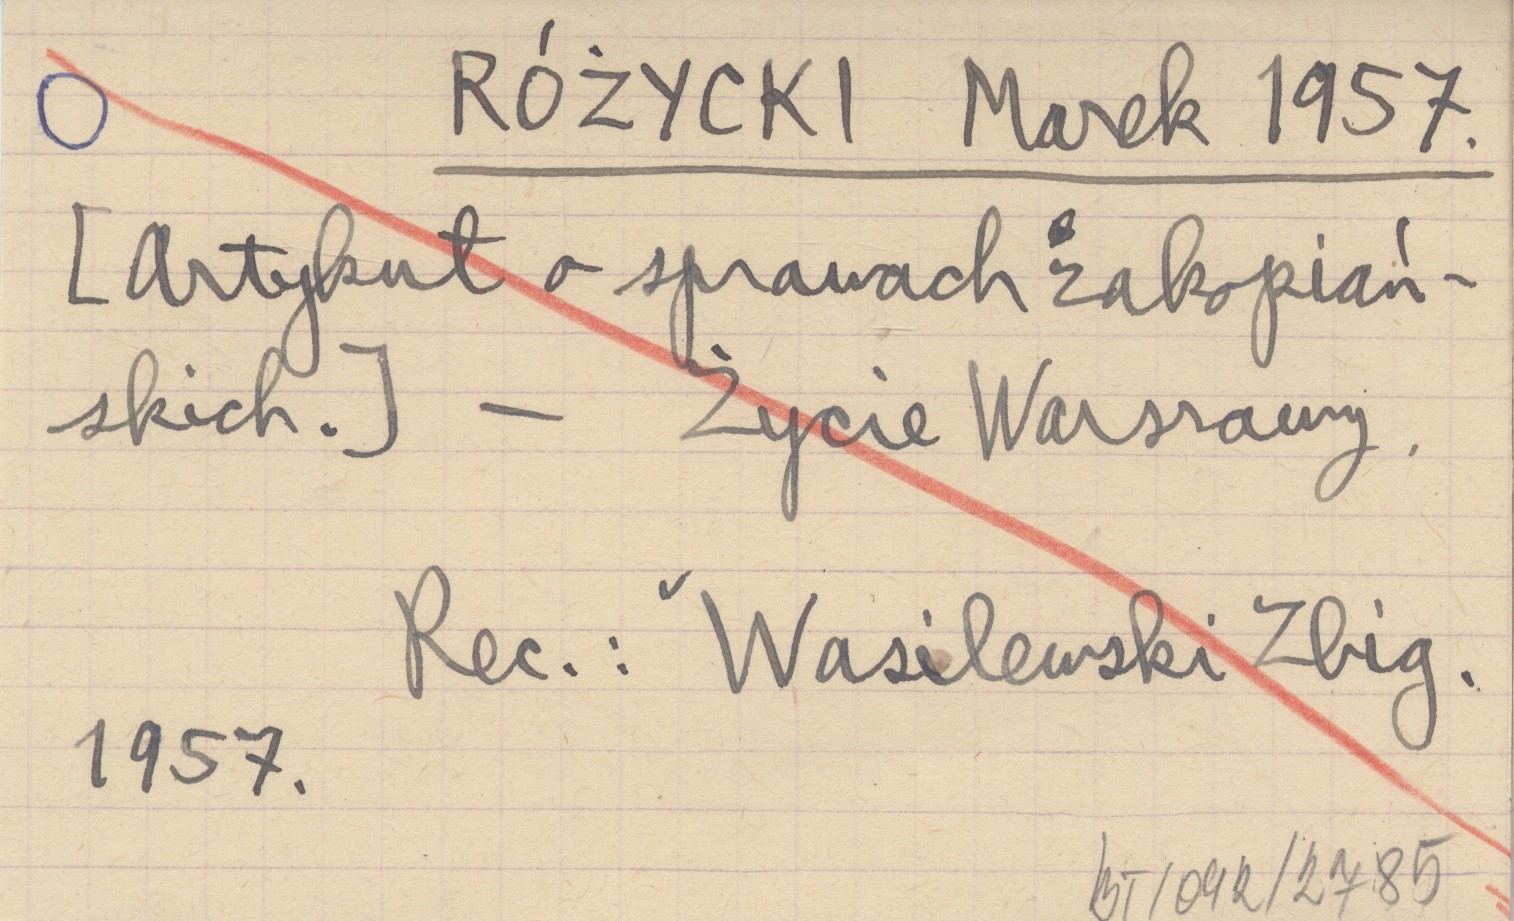 RÓŻYCKI Marek 1957.
[Artykuł o sprawach zakopiań-
skich.] — Życie Warszawy.
Rec.: Wasilewski Zbig.
1957.
BT/092/2785